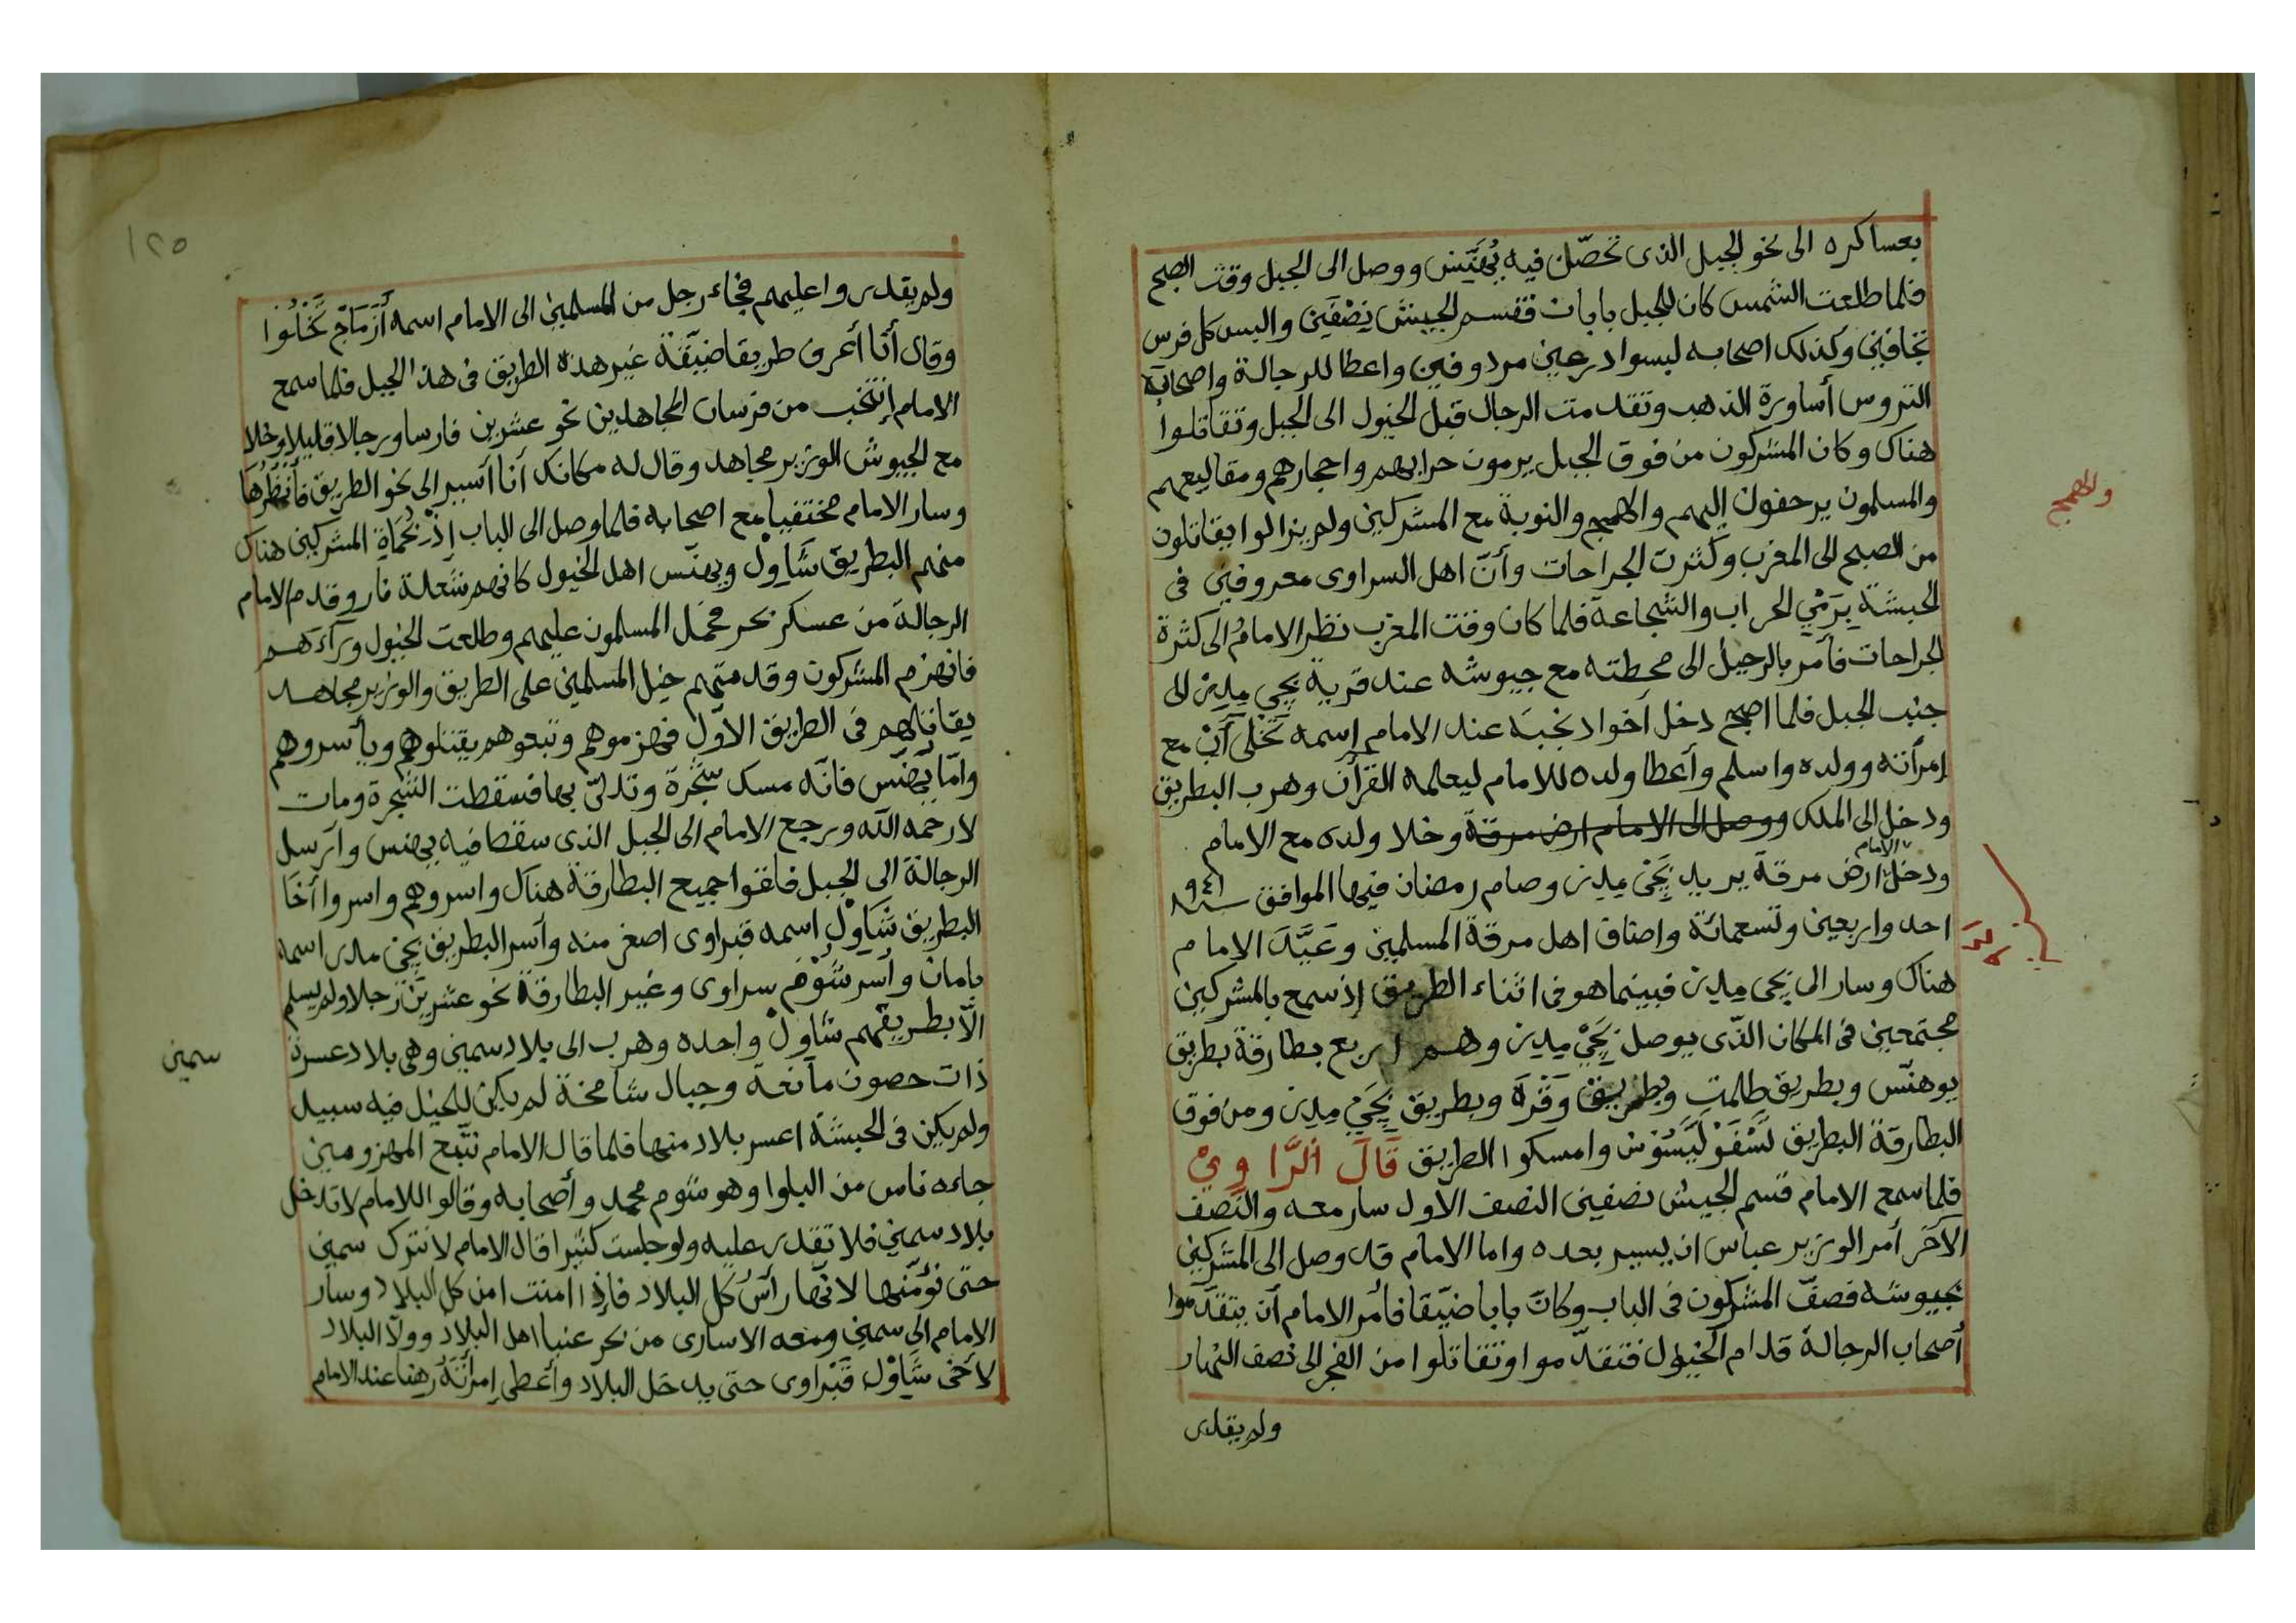 بعساكره الى نحو الجبل الذى تحصّن فيه بُهَنَّيس ووصل الى الجبل وقت الصبح
فلما طلعت الشمس كان للجبل بابان فقسم الجيش نِصْفَين والبس كل فرس
تجافين وكذلك اصحابه لبسوا درعين مردوفين واعطا للرجالة واصحابه
التروس أساورة الذهب وتقدمت الرجال قبل الخيول الى الجبل وتقاتلوا
هناك وكان المشركون من فوق الجبل يرمون حرابهم واحجارهم ومقاليعهم
والمسلمون يرحفون اليهم والهميج والنوبة مع المشركين ولم يزالوا يقاتلون
من الصبح الى المغرب وكثرت الجراحات وأنّ اهل السراوى معروفين فى
الحبشة بِرَمْي الحراب والشجاعة فلما كان وقت المغرب نظر الامامُ الى كثرة
الجراحات فأمر بالرحيل الى محطته مع جيوشه عند قرية بجى مدن الى
جنب الجبل فلما اصبح دخل أخواد نجبَه عند الامام إسمه تَخْلَى آبْ مع
إمرأته وولده واسلم وأعطا ولده للامام ليعلمه القرآن وهرب البطريق
ودخل الى الملك ووصل الى الامام ارض مرقة وخلا ولده مع الامام
الامام
ودخل ارض مرقة يريد بَجَى مِدن وصام رمضان فيها الموافق سنة ٩٤١
احد واربعين وتسعمائة واضاف اهل مرقة المسلمين وعَيَّدَ الامام
هناك وسار الى بجى مِدن فبينما هو فى اثناء الطريق إذ سمع بالمشركين
مجتمعين فى المكان الذّى يوصل بَجَىْ مِدن وهم اربع بطارقة بطريق
يوهنّس وبطريق طلمت وبطريق وَقَرَه وبطريق بَجَىْ مِدن ومن فوق
البطارقة البطريق لَسْفَوْ لَيَسُوْس وامسكوا الطريق قَالَ الرَّاوِيْ
فلما سمع الامام قسم الجيش نصفين النصف الاول سار معه والنصف
الآخَر أمر الوزير عباس ان يسير بعده واما الامام قد وصل الى المشركين
بجيوشه فصفّ المشركون فى الباب وكانَ بابا ضيّقا فأمر الامام أن يتقدّموا
أصحاب الرجالة قدام الخيول فتقدّموا وتقاتلوا من الفجر الى نصف النهار
ولم يقدر
والهميج
١٢٥
ولم يقدروا عليهم فجاء رجل من المسلمين الى الامام اسمه أزْمَاجْ نَخْلُوْا
وقال أنا أعرف طريقا ضيّقة غير هذه الطريق فى هذا الجبل فلما سمع
الامام إنتخب من فرسان المجاهدين نحو عشرين فارسا ورجالا قليلا وخلا
مع الجيوش الوزير مجاهد وقال له مكانك أنا أسير الى نحو الطريق فأنظُرُها
وسار الامام مختفيا مع اصحابه فلما وصل الى الباب إذْ بحُمَاةِ المشركين هناك
منهم البطريق شَاوِلْ وبهنّس اهل الخيول كانهم شعلة نار وقدم الامام
الرجالة من عسكر بحر فحمل المسلمون عليهم وطلعت الخيول ورآءهم
فانهزم المشركون وقدمتهم خيل المسلمين على الطريق والوزير مجاهد
يقاتلهم فى الطريق الأوّل فهزموهم وتبعوهم يقتلوهم ويأسروهم
وامّا بِهَنّس فانّه مسك شجْرة وتدلىّ بها فسقطت الشجرة ومات
لا رحمه الله ورجع الامام الى الجبل الذى سقط فيه بهنس وأرسل
الرجالة الى الجبل فلقوا جميع البطارقة هناك واسروهم واسروا أخَا
البطريق شَاوِلْ اسمه قبراوى اصغر منه وأسر البطريق بَجَىْ مدن اسمه
بامان وأسر شَوْم سراوى وغير البطارقة نحو عشرين رجلا ولم يسلم
الاّ بطريقهم شَاوِلْ واحده وهرب الى بلاد سمين وهى بلاد عسرة
ذات حصون مانعة وجبال شامخة لم يكن للخيل فيه سبيل
ولم يكن فى الحبشة اعسر بلاد منها فلما قال الامام نتبّع المهزومين
جاءه ناس من البلوا وهو شوم محمد وأصحابه وقالوا للامام لا تدخل
بلاد سمين فلا تقدر عليه ولو جلست كثيرا قال الامام لا نترك سمين
حتى نؤمّنها لانّها رأسُ كل البلاد فإذا امنت امن كل البلاد وسار
الامام الى سمين ومعه الاسارى من بحر عنبا اهل البلاد وولّا البلاد
لأخى شَاوْل قَبْراوى حتى يدخل البلاد وأعطى إمرأتَهُ رهنا عند الامام
سمين